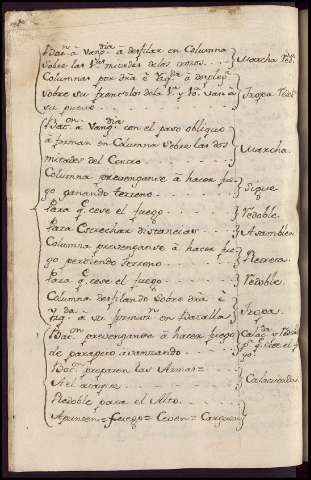 Bat.n á Vang.dia á desfilar en Columna
sobre las mitades de los
Marcha
Columnas por dra. é Yzq.da á desplegar
sobre su frente los de la V.a y Va. van á
su puesto
Tropa
Bat.on á Vang.dia con el paso obliquo
á formar en Columna sobre las dos
mitades del Centro
Marcha
Columna prevenganse á hacer fue-
go ganando terreno
Sigue
Para q.e cese el fuego
Redoble
Para Estrechar distancias
Asamblea
Columna prevenganse á hacer fue-
go perdiendo terreno
Retreta
Para q.e cese el fuego
Redoble
Columna desfilando sobre dra. é
Yzq.da á su en Batalla
Tropa
Bat.on prevenganse á hacer fuego
de parapeto avanzando
q.e cese el fu-
go
Bat.on preparen las Armas =
Al ataque
Calacuerda
Redoble para el Alto
Apunten = Fuego = Cesen = Carguen